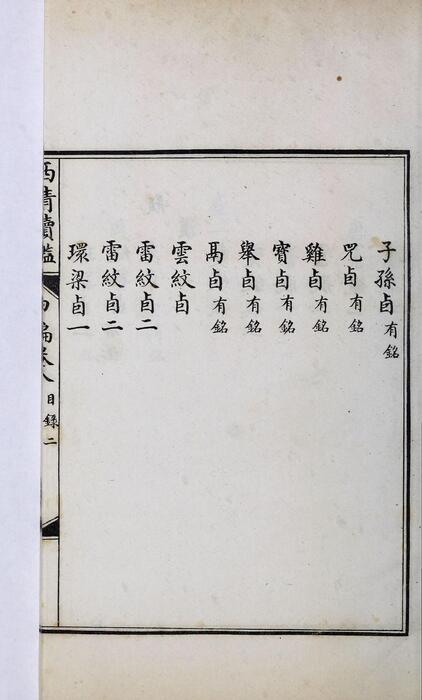 子孫卣有銘
兕卣有銘
雞卣有銘
寶卣有銘
舉卣有銘
卣有銘
雲紋卣
雷紋卣二
雷紋卣二
環梁卣一
西清續鑑 甲編卷八 目錄二